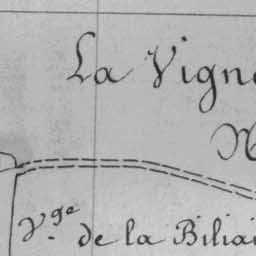 La Vign
N
V.ge de la Biliai